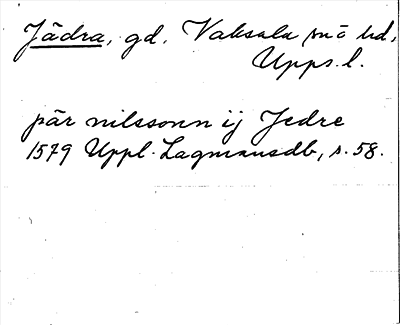 Jädra, gd, Vaksala sn o hd,
Upps. l.
pär nilssonn ij Jedre
1579 Uppl. Lagmansdb, s. 58.